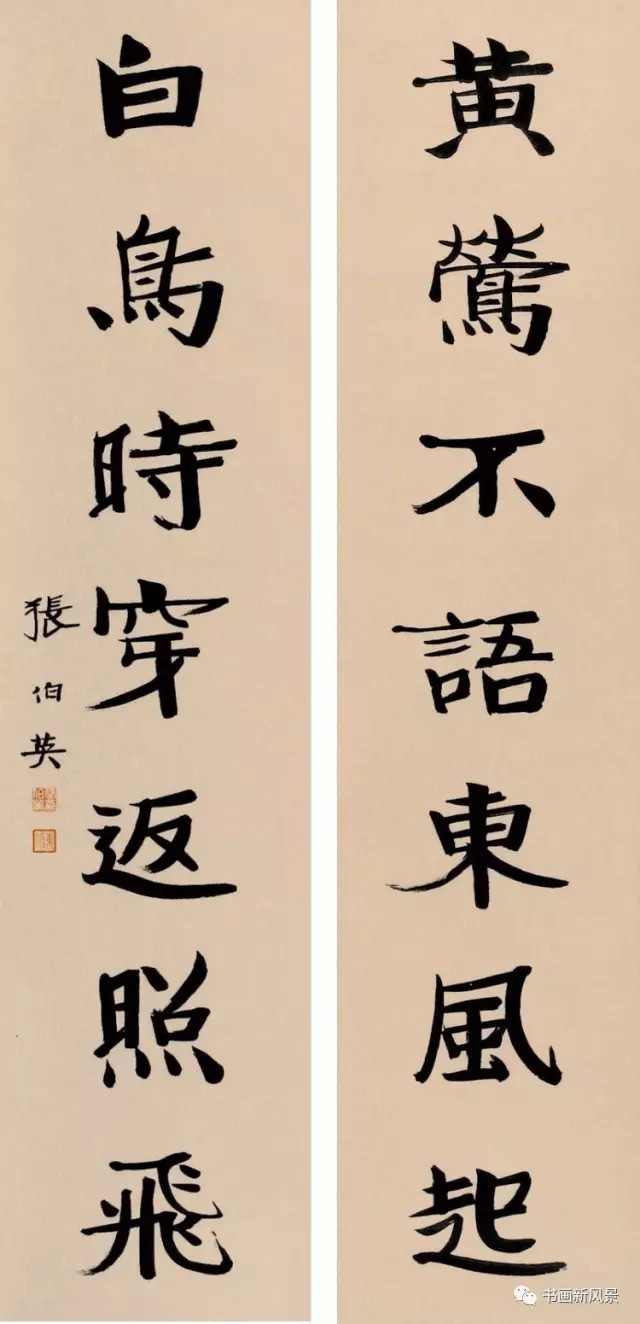 黃鶯不語東風起
白鳥時穿返照飛
張伯英
书画新风景